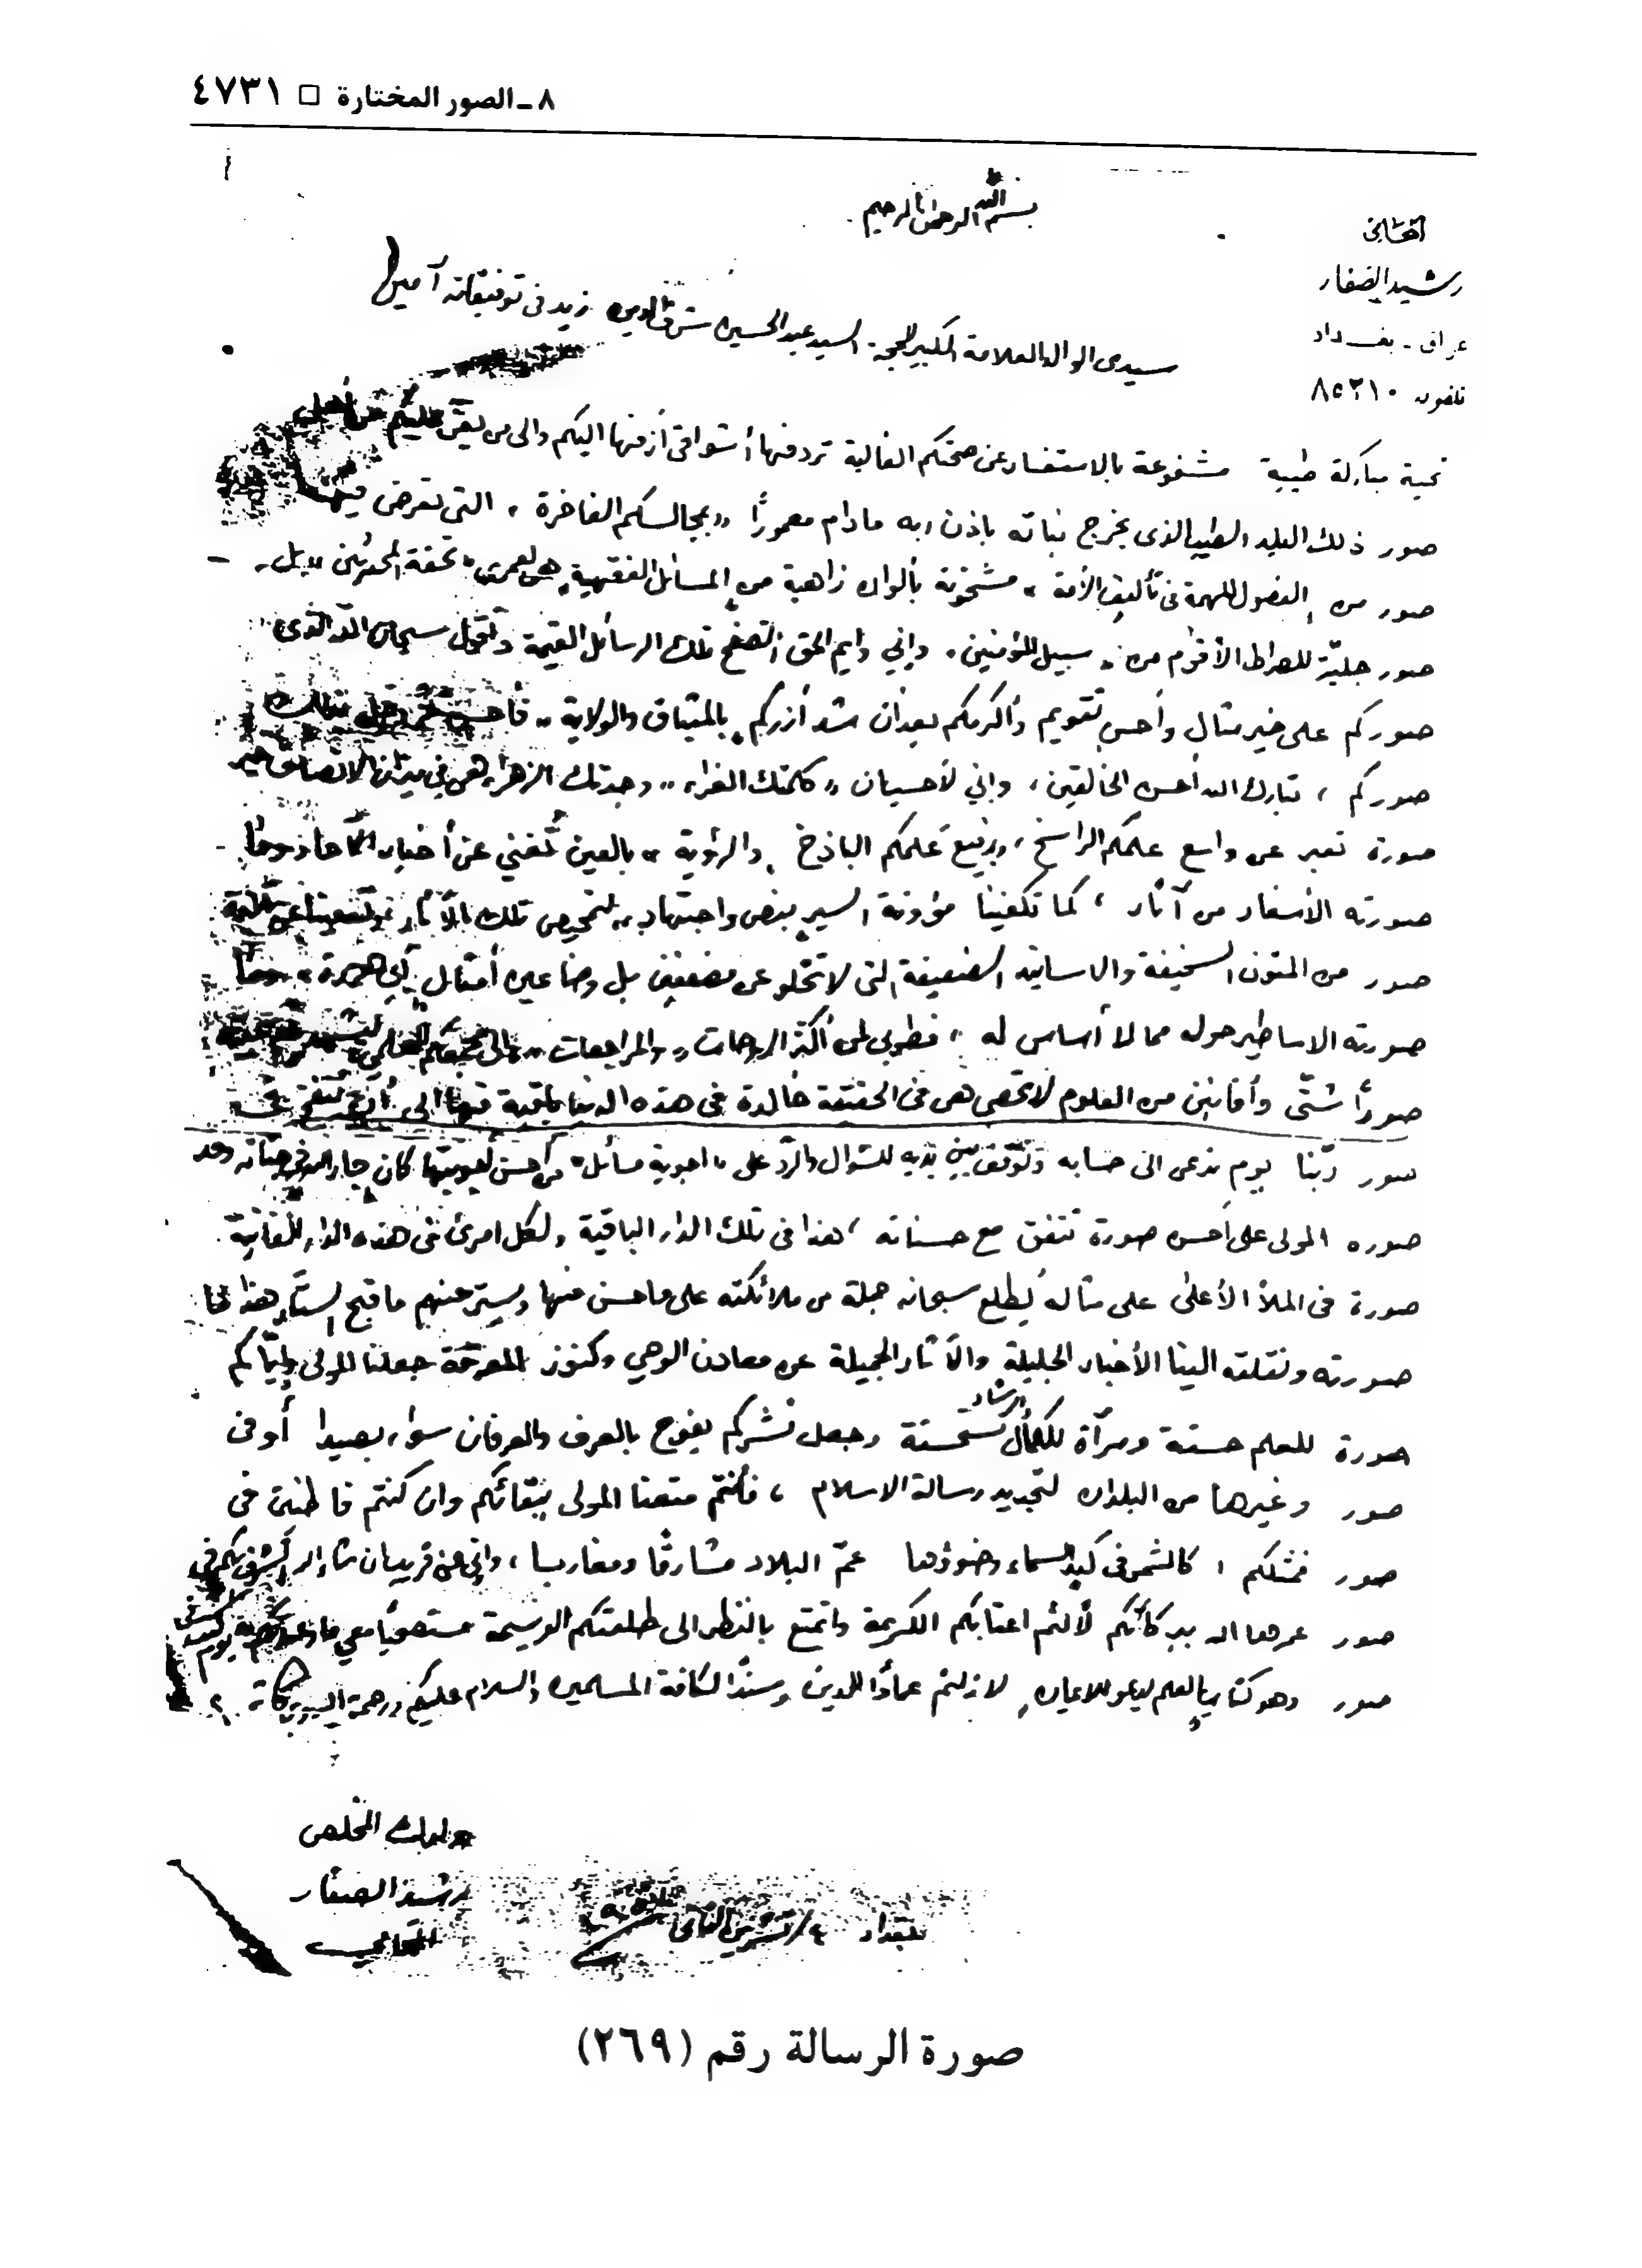 ٨ ـ الصور المختارة □ ٤٧٣١
بسم الله الرحمن الرحيم
المحامي
رشيد الصفار
عراق - بغداد
تلفون ٨٥٢١٠
سيدي الوالد العلامة الكبير الحجة السيد عبد الحسين شرف الدين زيد في توفيقاته آمين
تحية مباركة طيبة مشفوعة بالاستفسار عن صحتكم الغالية تردفها أشواقي أزفها اليكم والى من
صور ذلك البلد الطيب الذي يخرج نباته باذن ربه ما دام معمورًا «بمجالسكم الفاخرة» التي تعرض فيها
صور من الفصول المهمة في تأليف الأمة» مشحونة بألوان زاهية من المسائل الفقهية هي لعمري «تحفة المحدثين» بل
صور جلية للصراط الأقوم من «سبيل المؤمنين» وإني وايم الحق اتصفح تلك الرسائل القيمة وأقول سبحان الله الذي
صوركم على خير مثال وأحسن تقويم وأكرمكم بعد أن شد أزركم بالميثاق والولاية» فأحسن
صوركم ، تبارك الله أحسن الخالقين ، واني لأحسبان «كلمتك الغراء» وجدتك الزهراء هي في ميزان الانصاف خير
صورة تعبر عن واسع علمكم الراسخ ، ورفيع عَلَمكم الباذخ والرؤية» بالعين تُغني عن أخبار الآحاد وما
صورته الأسفار من آثار ، كما تكفينا مؤونة السير بنص واجتهاد» لتمحيص تلك الآثار
صور من المتون السخيفة والاسانيد الضعيفة التي لا تخلو عن مضعفين بل وضاعين أمثال أبي هريرة» وما
صورته الاساطير حوله مما لا أساس له ، فطوبى لمن أكثر «والمراجعات» والى
صورًا شتّى وأفانين من العلوم لا تحصى هي في الحقيقة خالدة في هذه الدنيا باقية فيها الى أن ينفخ في
صور ربّنا يوم ندعى الى حسابه ونوقف بين يديه للسؤال والردّ على «اجوبة مسائل» من أحسن كان جار الله في جناته وقد
صوره المولى على أحسن صورة تتفق مع حسناته ، هذا في تلك الدار الباقية ولكل امرئ في هذه الدار الفانية
صورة في الملأ الأعلى على مثاله يُطلع سبحانه جملة من ملائكته على ما حسن منها ويستر عنهم ما قبح الستار هذا ما
صورته ونقلته الينا الأخبار الجليلة والآثار الجميلة عن معادن الوحي وكنوز المعرفة جعلنا المولى وإيّاكم
صورة للعلم حسنة ومرآة للكمال والرشاد مستحسنة وجعل نشركم يفوح بالعرف والعرفان سواء بصيدا أو في
صور وغيرها من البلدان لتجديد رسالة الاسلام ، فأنتم متعنا المولى ببقائكم وان كنتم قاطنين في
صور فمثلكم كالشمس في كبد السماء وضوؤها عمّ البلاد مشارقًا ومغاربا ، واني عن قريب ان شاء الله أتشرف بكم في
صور عمرها الله ببركاتكم لألثم اعتابكم الكريمة واتمتع بالنظر الى طلعتكم الوسيمة مستصحبًا معي
صور وهو كتاب بالعلم لا زلتم عمادًا للدين وسندًا لكافة المسلمين والسلام عليكم ورحمة الله وبركاته
ولدك المخلص
رشيد الصفار
المحامي
بغداد ٤/تشرين الثاني
صورة الرسالة رقم (٢٦٩)